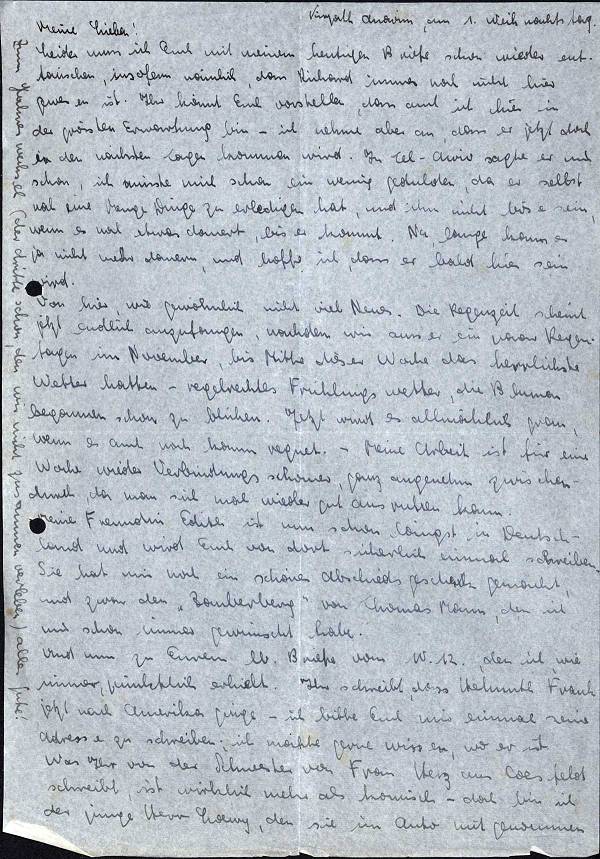 Kirjath Anavim, am 1. Weihnachtstag.
Meine Lieben!
Leider muss ich Euch mit meinem heutigen Briefe schon wieder ent-
täuschen, insofern nämlich, dass Richard immer noch nicht hier
gewesen ist. Ihr könnt Euch vorstellen, dass auch ich hier in
der grössten Erwartung bin – ich nehme aber an, dass er jetzt doch
in den nächsten Tagen kommen wird. In Tel-Aviv sagte er mir
schon, ich müsste mich schon ein wenig gedulden, da er selbst
noch eine Menge Dinge zu erledigen hat, und ihm nicht böse sein,
wenn es noch etwas dauert, bis er kommt. Na, lange kann es
ja nicht mehr dauern, und hoffe ich, dass er bald hier sein
wird.
Von hier, wie gewöhnlich nicht viel Neues. Die Regenzeit scheint
jetzt endlich anzufangen, nachdem wir ausser ein paar Regen-
tagen im November, bis Mitte dieser Woche das herrlichste
Wetter hatten – regelrechtes Frühlingswetter, die Blumen
begannen schon zu blühen. Jetzt wird es allmählich grau,
wenn es auch noch kaum regnet. – Meine Arbeit ist für eine
Woche wieder Verbindungs ganz angenehm zwischen-
durch, da man sich mal wieder gut ausruhen kann.
Meine Freundin Edith ist nun schon längst in Deutsch-
land und wird Euch von dort sicherlich einmal schreiben.
Sie hat mir noch ein schönes Abschiedsgeschenk gemacht,
und zwar den „Zauberberg" von Thomas Mann, den ich
mir schon immer gewünscht habe.
Und nun zu Eurem lb. Briefe vom 10.12. den ich, wie
immer, pünktlich erhielt. Ihr schreibt, dass Helmuth Frank
jetzt nach Amerika ginge – ich bitte Euch mir einmal seine
Adresse zu schreiben; ich möchte gerne wissen, wo er ist
Was Ihr von der Schwester von Frau Herz aus Coesfeld
schreibt, ist wirklich mehr als komisch – doch bin ich
der junge Herr Loewy, den sie im Auto mitgenommen
Zum Jahreswechsel (der dritte schon, den wir nicht zusammen verleben) alles Gute!